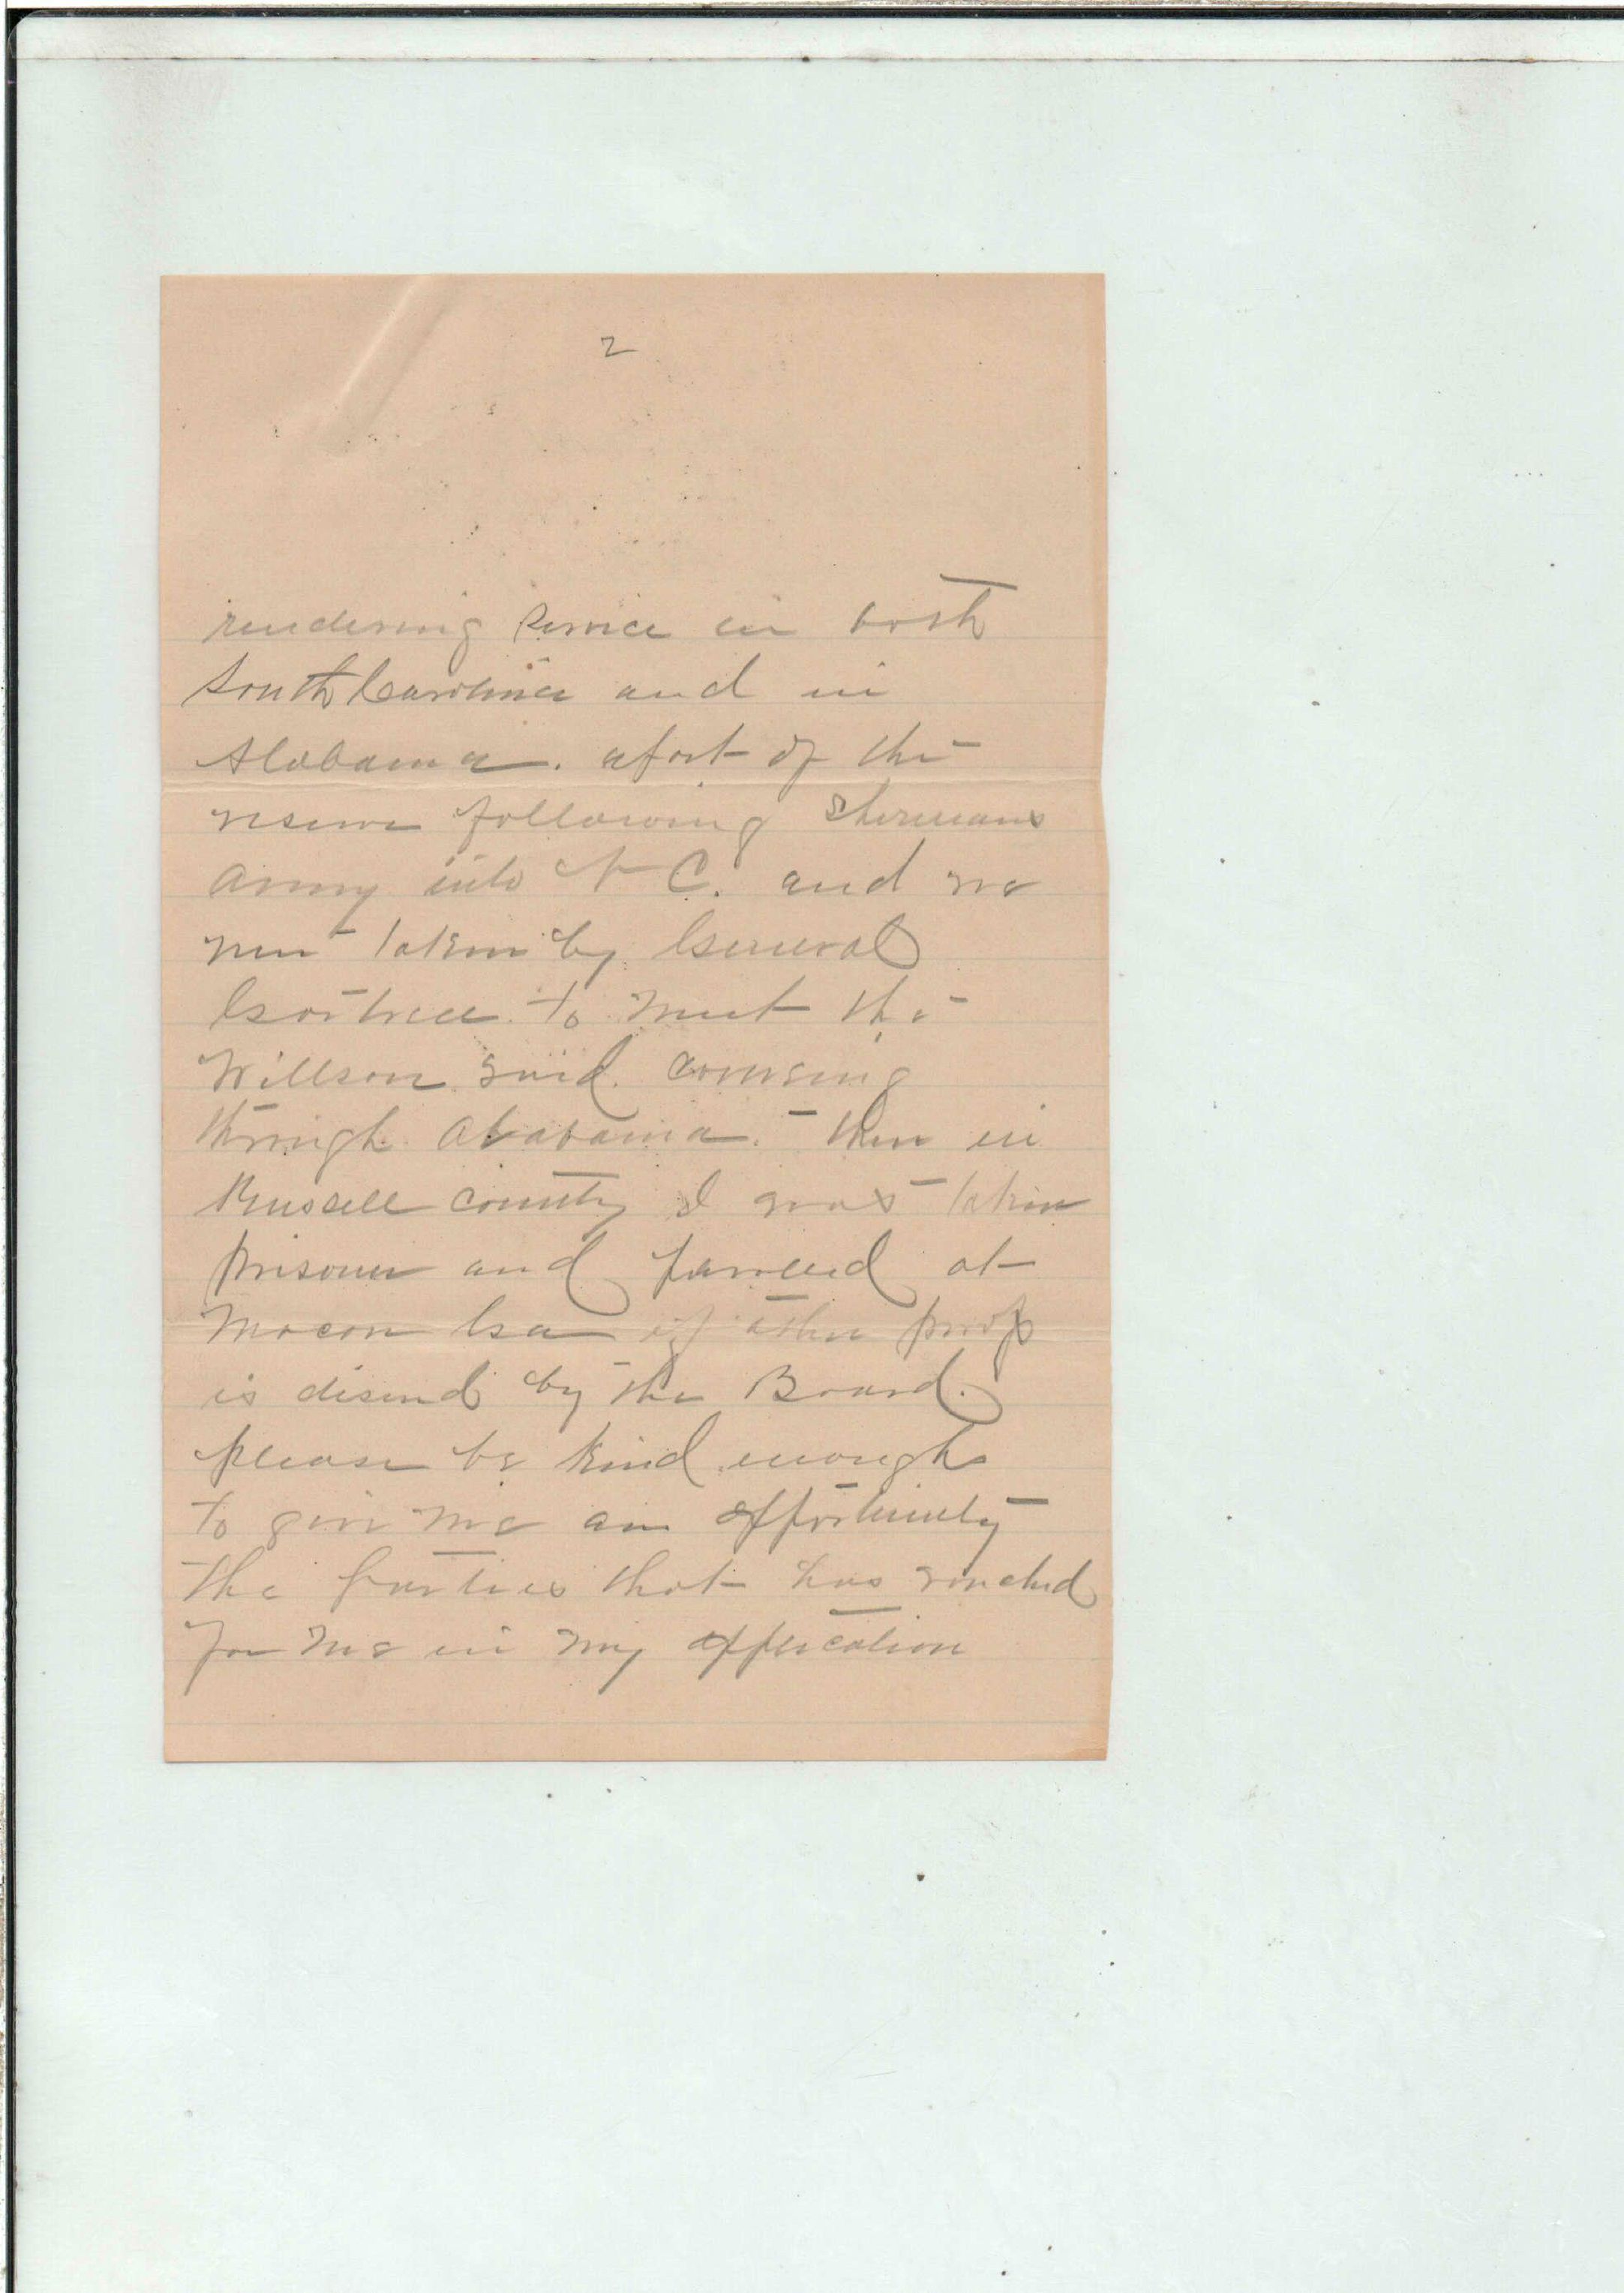 2
rendering service in both
South Carolina and in
Alabama. apart of the
reserve following Shermans
army into N C. and we
were taken by General
Gartrell to meet the
Willson raid. comeing
through Alabama. then in
Russell county I was taken
prisoner and paroled at
Macon Ga if other proof
is desired by the Board.
please be kind enough
to give me an opportunity
the parties that has vouched
for me in my application